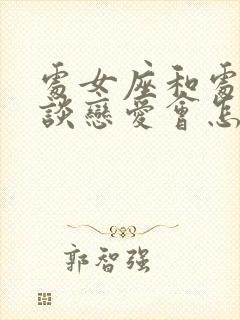 處女座和處
談戀愛會怎
郭智强